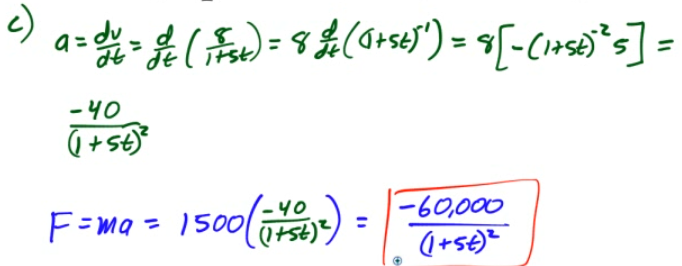 c) a = dv/dt = d/dt (8/(1+5t)) = 8 d/dt ((1+5t)⁻¹) = 8[-(1+5t)⁻² 5] =
-40/(1+5t)²
F = ma = 1500(-40/(1+5t)²) = -60,000/(1+5t)²